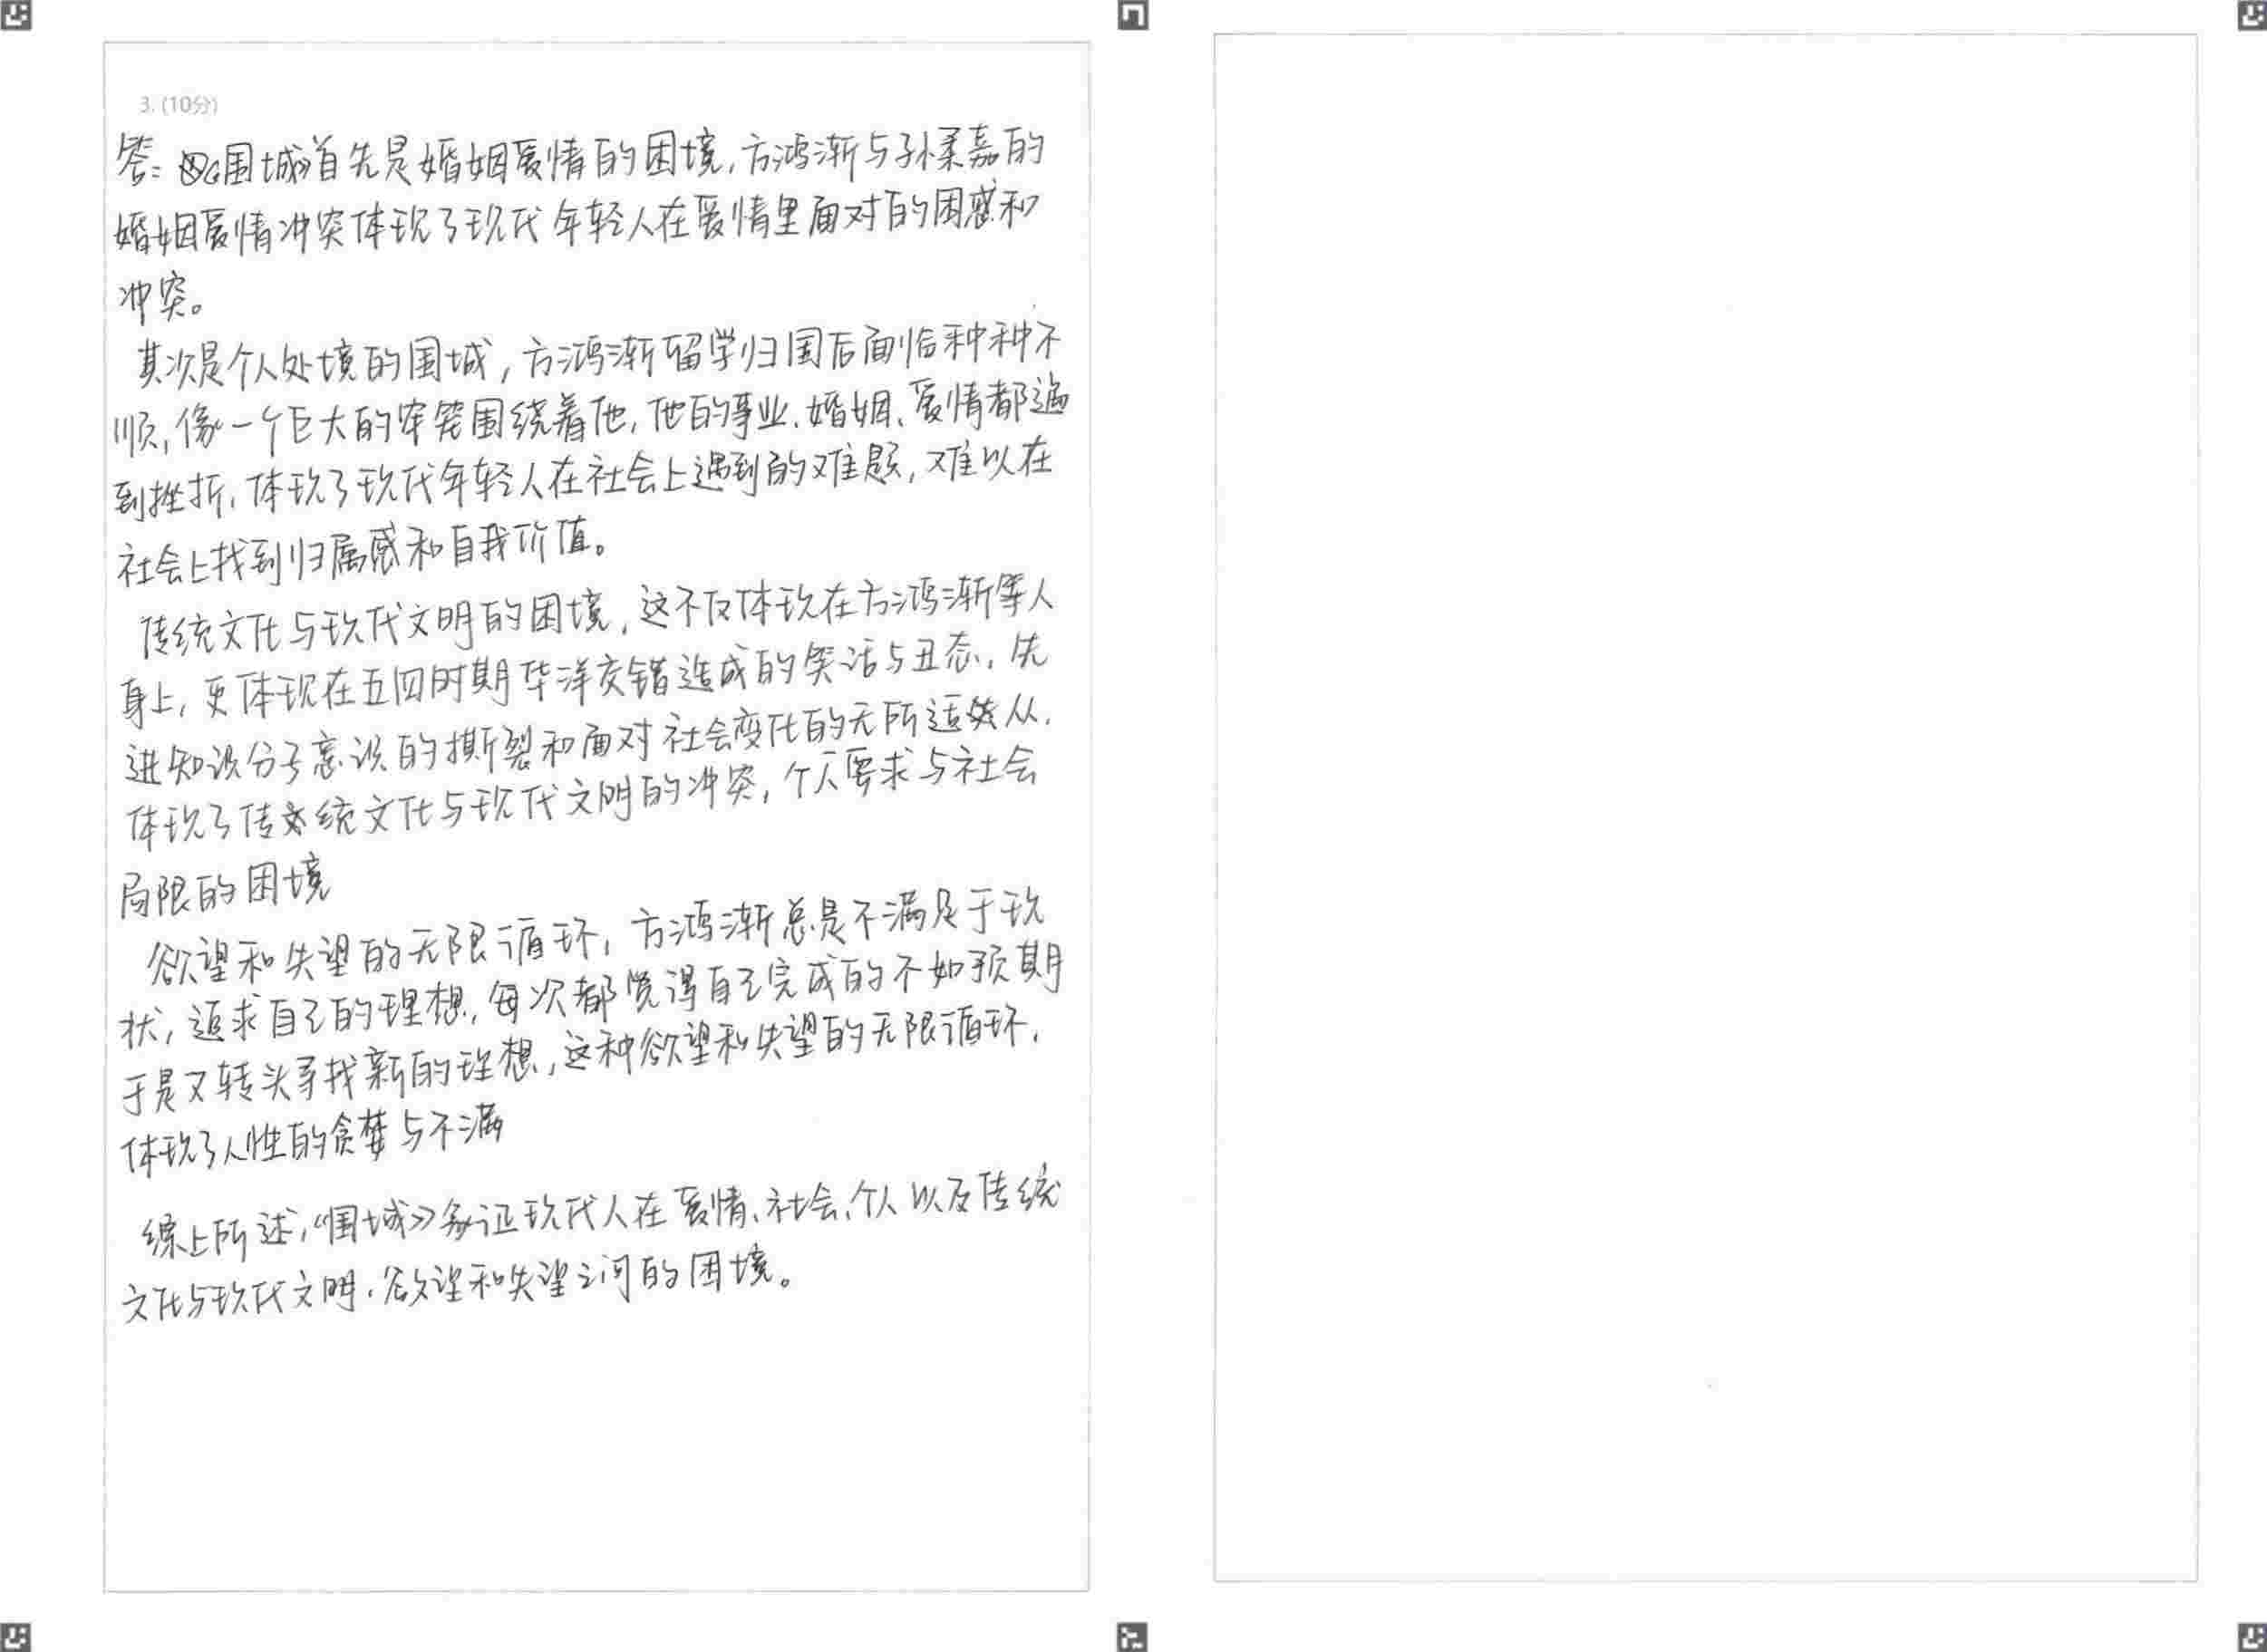 3. (10分)
答：《围城》首先是婚姻爱情的困境，方鸿渐与孙柔嘉的
婚姻爱情冲突体现了现代年轻人在爱情里面对的困惑和
冲突。
其次是个人处境的围城，方鸿渐留学归国后面临种种不
顺，像一个巨大的牢笼围绕着他，他的事业、婚姻、爱情都遇
到挫折，体现了现代年轻人在社会上遇到的难题，难以在
社会上找到归属感和自我价值。
传统文化与现代文明的困境，这不仅体现在方鸿渐等人
身上，更体现在五四时期华洋交错造成的笑话与丑态，先
进知识分子意识的撕裂和面对社会变化的无所适从，
体现了传统文化与现代文明的冲突，个人要求与社会
局限的困境
欲望和失望的无限循环，方鸿渐总是不满足于现
状，追求自己的理想，每次都觉得自己完成的不如预期
于是又转头寻找新的理想，这种欲望和失望的无限循环，
体现了人性的贪婪与不满
综上所述，《围城》象征现代人在爱情、社会、个人以及传统
文化与现代文明、欲望和失望之间的困境。